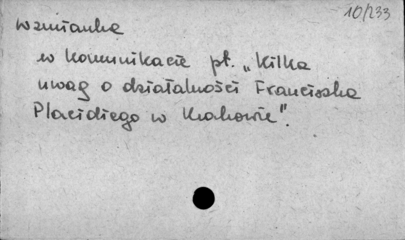 10/233
wzmianka
w komunikacie pt. „Kilka
uwag o działalności Franciszka
Placidiego w Krakowie".